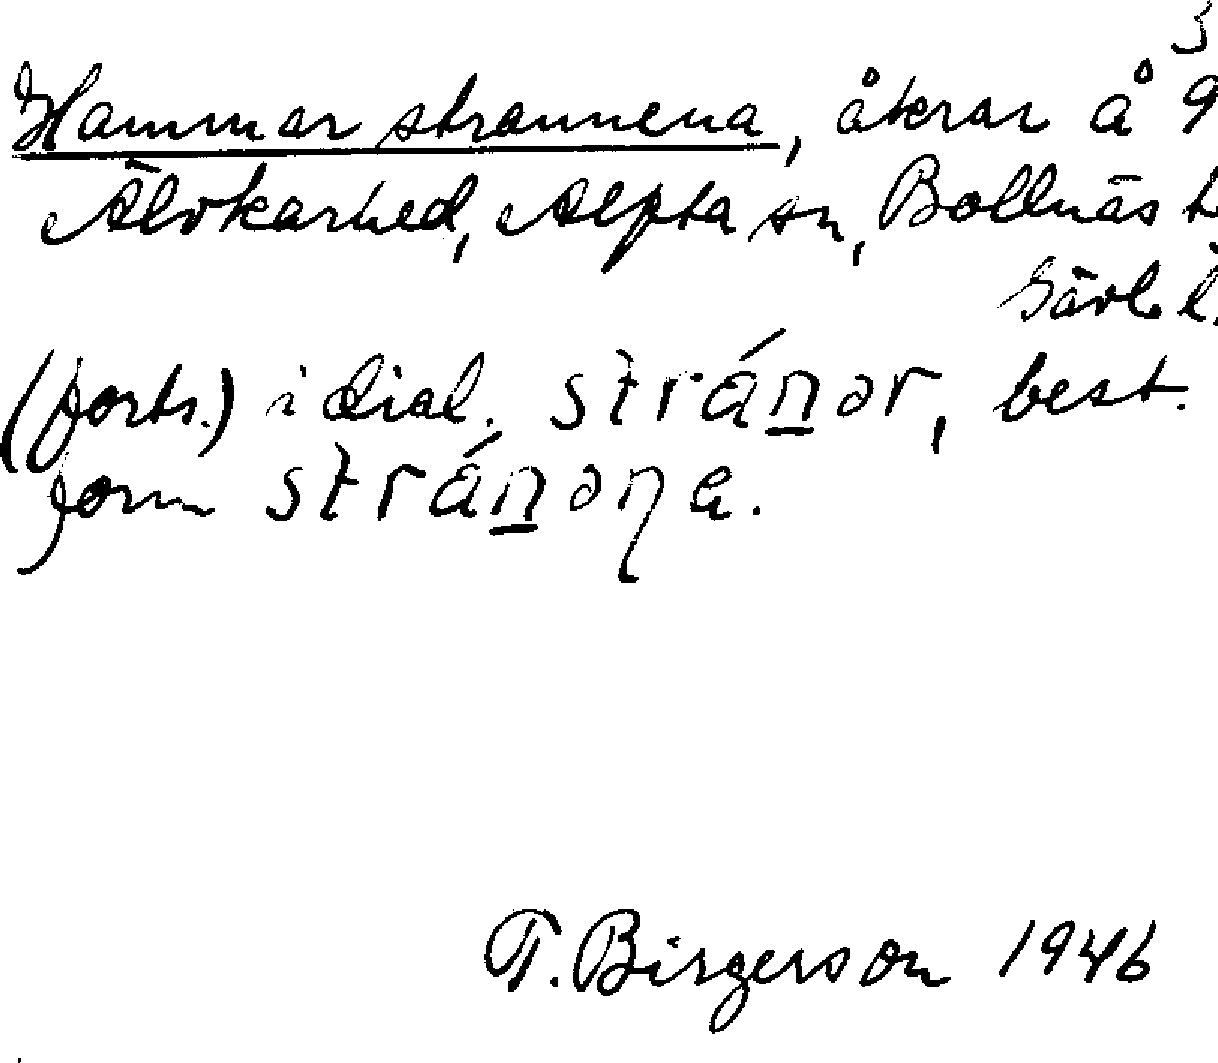 3
Hammarstrannena, åkrar å 9
Älvkarhed, Alfta sn, Bollnäs t
Gävl. l.
(forts.) i dial. stránər, best.
form stránəṇa.
T. Birgerson 1946